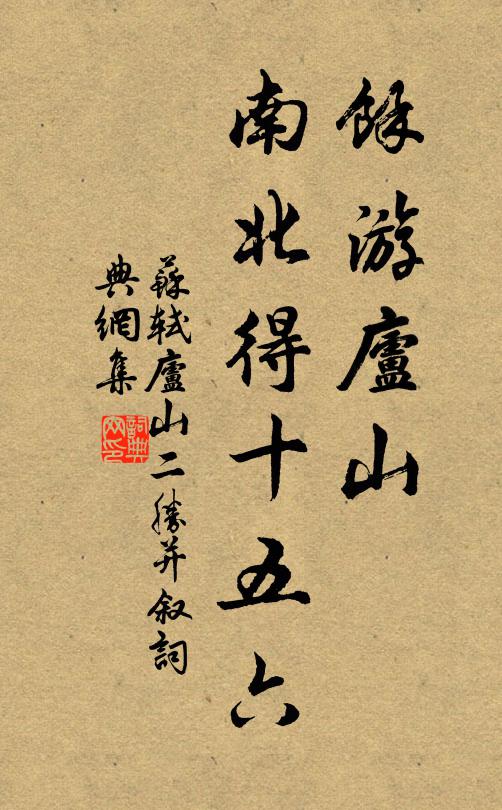 餘游廬山
南北得十五六
蘇軾廬山二勝并叙詞
典網集
詞典
网印